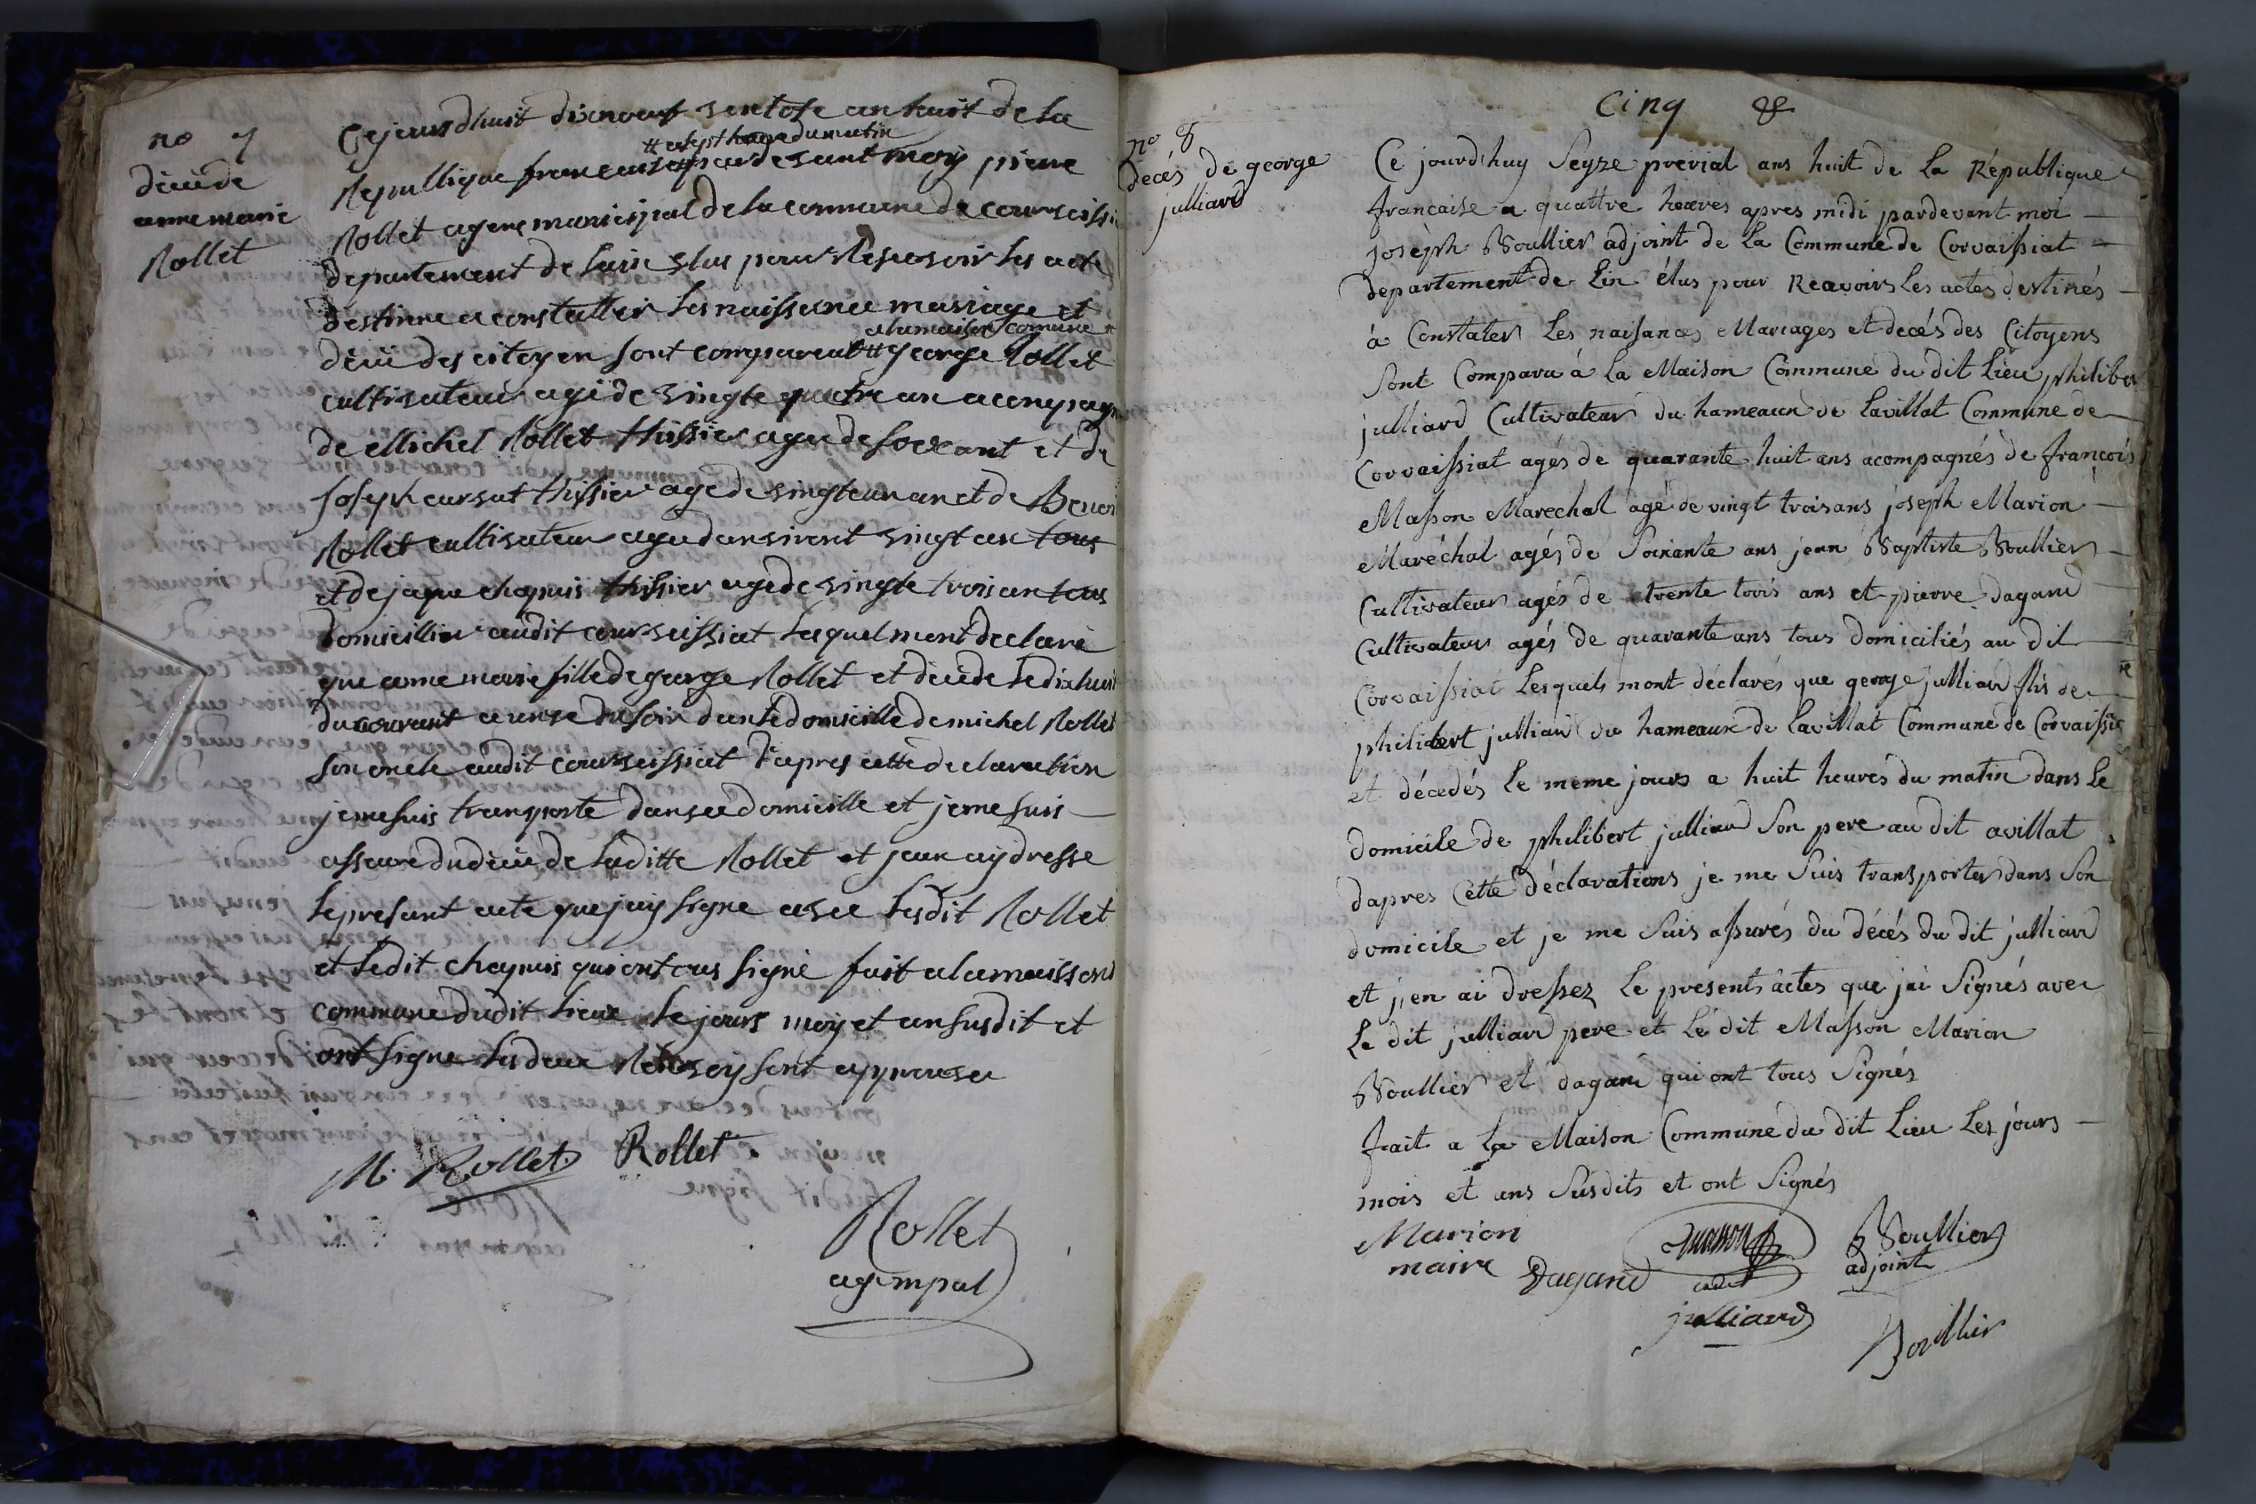 no 7
décé de
anne marie
Rollet
Cejourdhuit dixneuf ventose an huit de la
# a sept heure du matin
Republique francaise # par de vant moy pierre
Rollet agent municipal de la commune de courveissia
departement de lain elus pour Resevoir les acte
destinne a constatter les naissance mariage et
a la maison comune
décé des citoyen sont comparent # george Rollet
cultivateur agé de vingte quatre an acompagn
de Michel Rollet thissier agee de soixant et de
Joseph cursat thissier age de vingteun an et de Benoi
Rollet cultivateur agee danviront vingt an tous
et de jaque chapuis thissier age de vingte trois an tous
domicillier audit courveissiat lequel mont declaré
que anne marie fille de george Rollet et décede le dixhuit
du courant a unse du soir dans le domicille de michel Rollet
son oncle audit courveissiat d'apres cette declaration
je me suis transporte dans ce domicille et je me suis
asseure du décé de laditte Rollet et jean ay dresse
le presant acte que jay signe avec lesdit Rollet
et ledit chapuis qui ont ous signé fait a la maisson
commune dudit lieux le jours moy et an susdit et
ont signe les deux Renvoy sont approuve
M. Rollet Rollet
Rollet
agt mpal
Cinq
no 8
décés de george
julliard
Ce jourd'huy Seyze prerial ans huit de La République
francaise a quattre heures apres midi pardevant moi
joséph Boullier adjoint de La Commune de Corvaissiat
departement de Lin élus pour Recevoirs Les actes destinés
à Constater Les naisances Mariages et decés des Citoyens
Sont Comparu à La Maison Commune du dit Lieu philiber
julliard Cultivateur du hameaux de Lavillat Commune de
Corvaissiat agés de quarante huit ans acompagnés de françois
Masson Marechal agé de vingt trois ans joseph Marion
Maréchal agés de Soixante ans jean Baptiste Boullier
Cultivateur agés de trente trois ans et pierre dagand
Cultivateur agés de quarante ans tous domiciliés au dit
Corvaissiat Lesquels mont déclarés que george julliard fils de
philibert julliard du hameaux de Lavillat Commune de Corvaissia
et décédés Le meme jours a huit heures du matin dans Le
domicile de philibert julliard Son pere au dit avillat
dapres Cette déclarations je me Suis transporter dans Son
domicile et je me Suis assurés du décés du dit julliard
et j,en ai dressez Le présents âctes que jai Signés avec
Le dit julliard pere et Le dit Masson Marion
Boullier et dagand qui ont tous Signés
fait a La Maison Commune du dit Lieu Les jours
mois et ans Susdits et ont Signés
Marion
maire
Dagand
Masson
cadet
Boullier
adjoint
julliard
Boullier